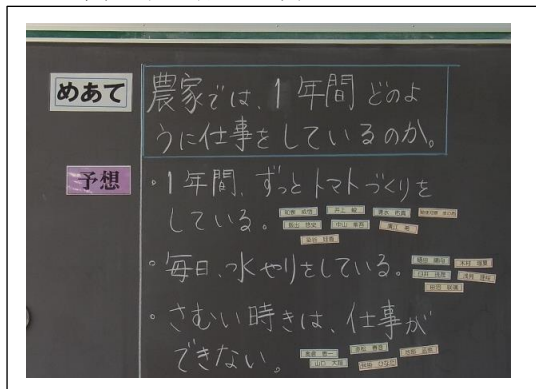 めあて
農家では、1年間どのよ
うに仕事をしているのか。
予想
・1年間、ずっとトマトづくりを
している。
・毎日、水やりをしている。
・さむい時きは、仕事が
できない。